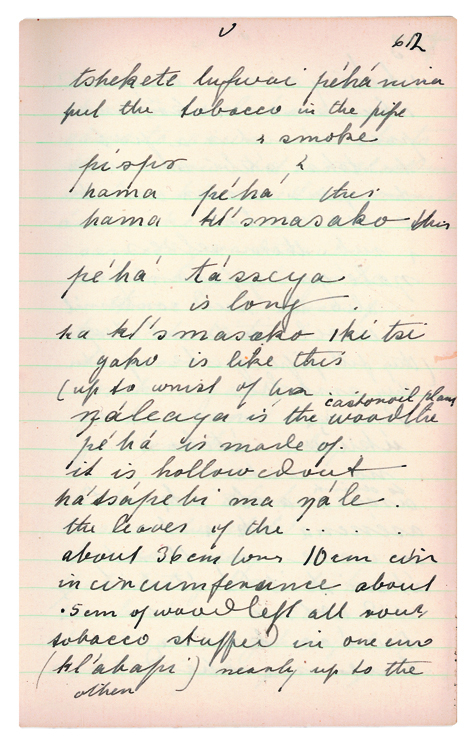 v 62
tshekete lufwai péhá nina
put the tobacco in the pipe
& smoke
pispr 2
hama péhá this
hama kl'smasako this
péhá tásseya
is long.
ha kl'smasako iki tsi
yako is like this
(up to wrist of
castonoil plant
ŋáleaya is the wood the
péhá is made of.
it is hollowed out
hátsápebi ma ŋále.
the leaves of the . . . . .
about 36cm long 10cm cir
in circumference about
.5cm of wood left all roun
tobacco stuffed in one end
(kl'akapi) nearly up to the
other